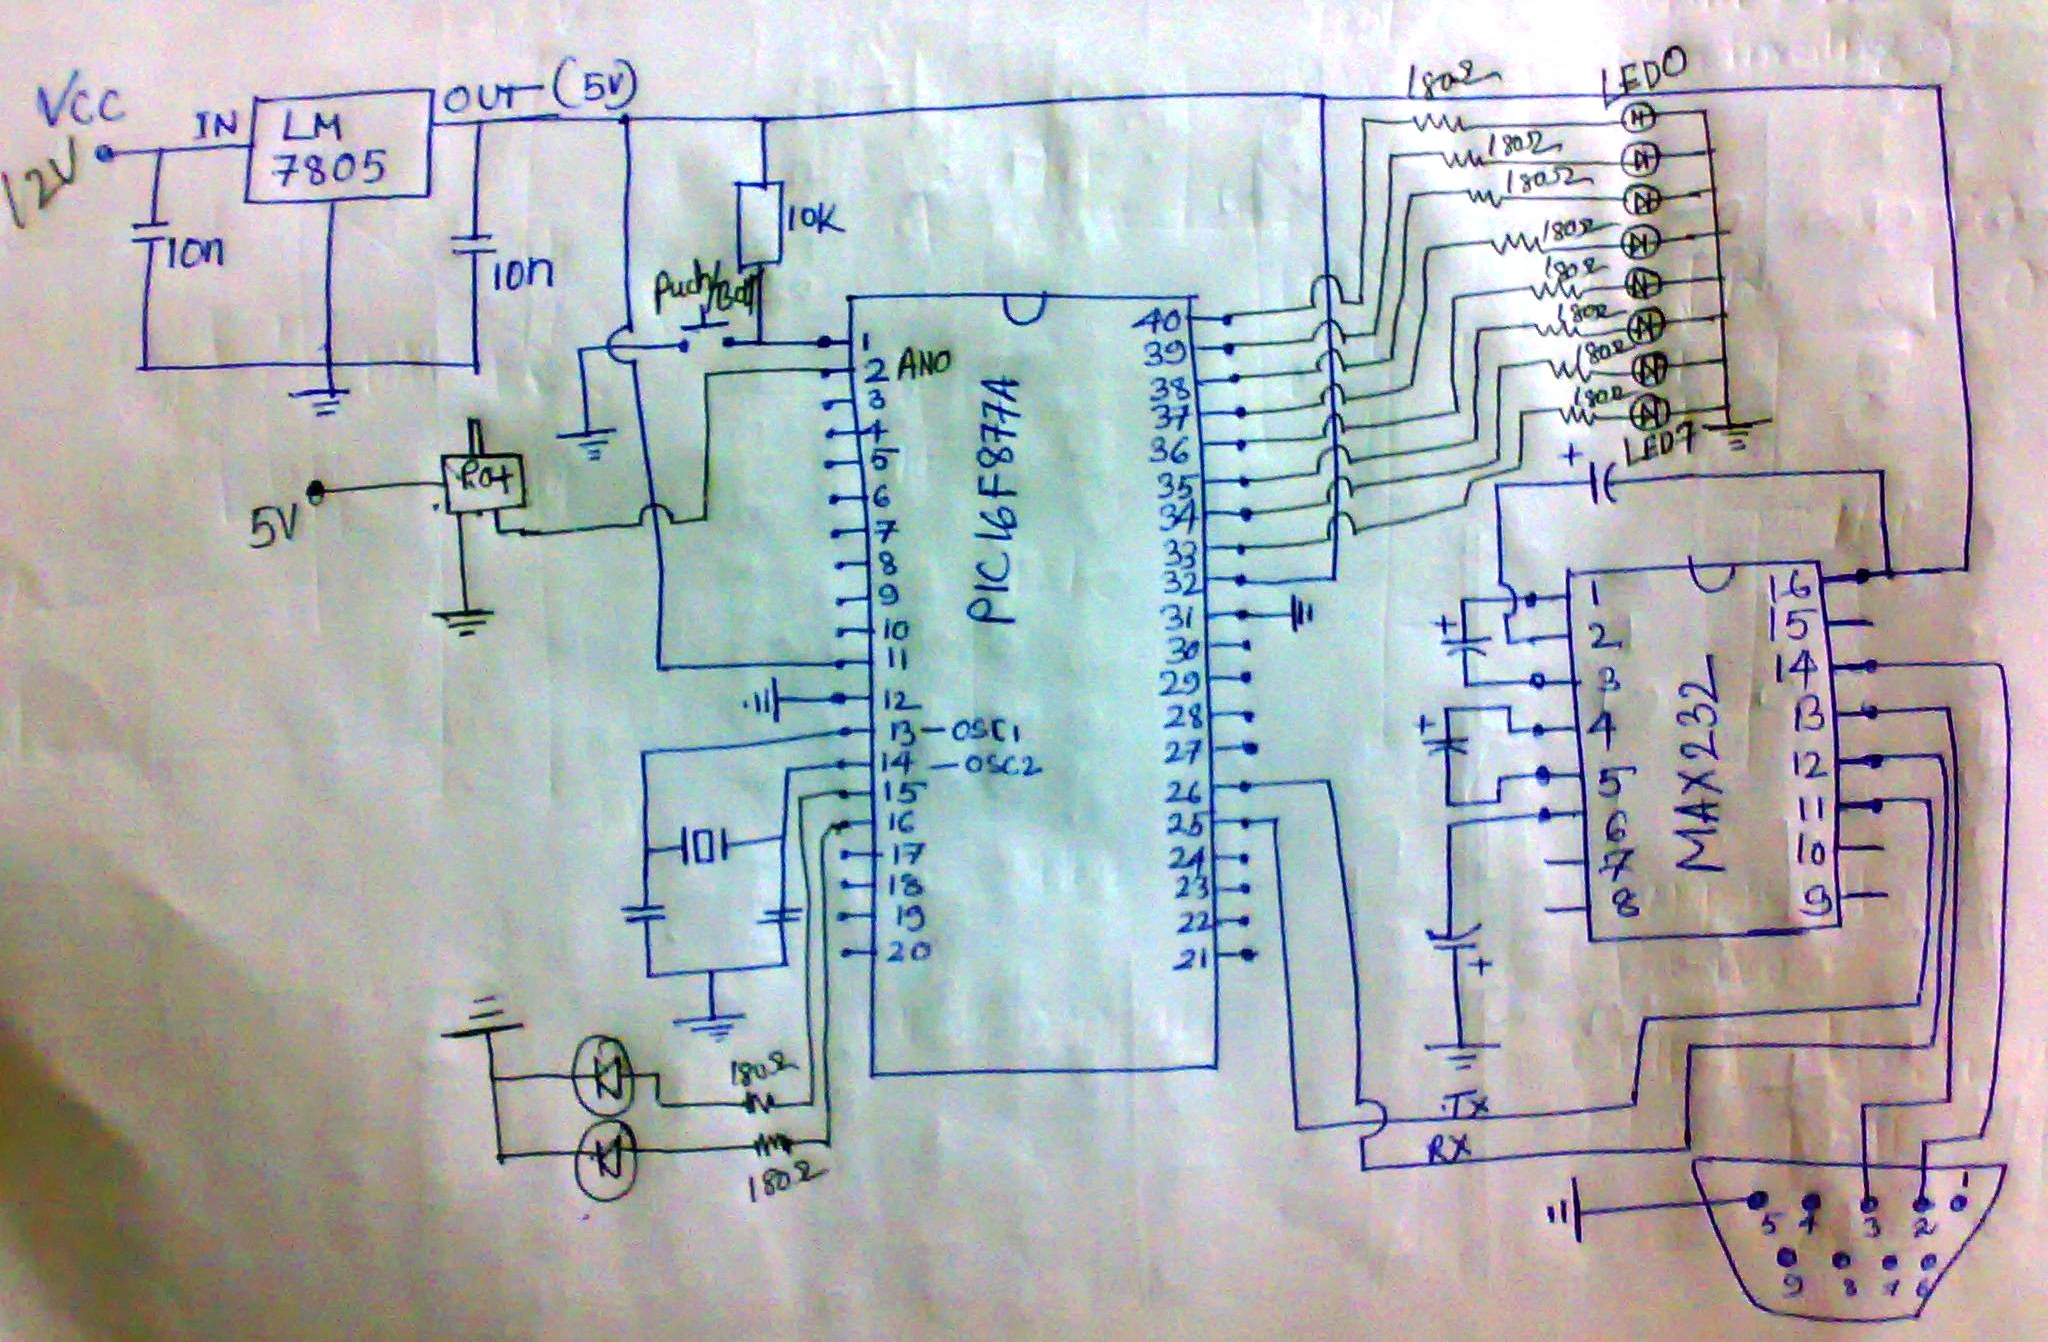 VCC
12V
IN
LM
7805
OUT (5V)
10n
10n
10K
5V
Pot
PIC16F877A
1
2 AN0
3
4
5
6
7
8
9
10
11
12
13 - OSC1
14 - OSC2
15
16
17
18
19
20
40
39
38
37
36
35
34
33
32
31
30
29
28
27
26
25
24
23
22
21
180Ω
LED0
180Ω
180Ω
180Ω
180Ω
180Ω
180Ω
180Ω
LED7
+
+
+
+
MAX232
1
2
3
4
5
6
7
8
16
15
14
13
12
11
10
9
180Ω
180Ω
Tx
RX
5 4 3 2 1
9 8 7 6